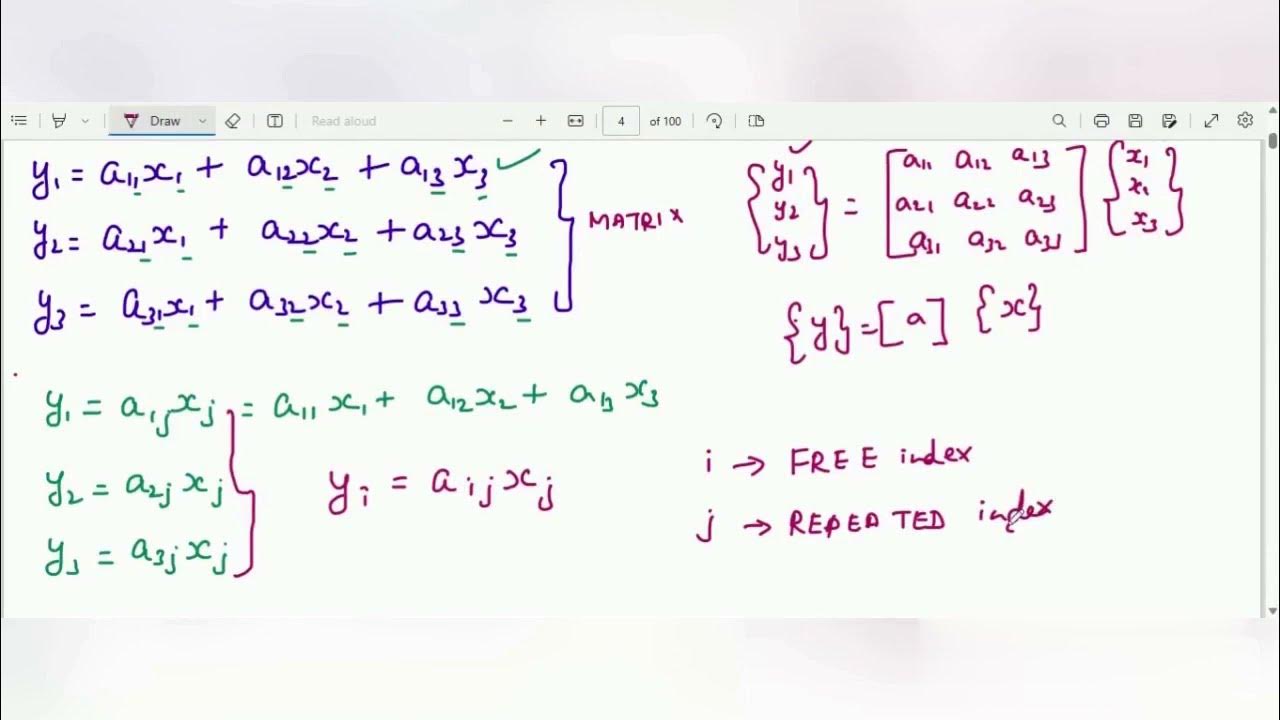 Draw
Read aloud
4 of 100
y₁ = a₁₁x₁ + a₁₂x₂ + a₁₃x₃
y₂ = a₂₁x₁ + a₂₂x₂ + a₂₃x₃
y₃ = a₃₁x₁ + a₃₂x₂ + a₃₃x₃
MATRIX
{y₁ y₂ y₃} = [a₁₁ a₁₂ a₁₃
a₂₁ a₂₂ a₂₃
a₃₁ a₃₂ a₃₃] {x₁ x₂ x₃}
{y} = [a] {x}
y₁ = a₁ⱼxⱼ = a₁₁x₁ + a₁₂x₂ + a₁₃x₃
y₂ = a₂ⱼxⱼ
y₃ = a₃ⱼxⱼ
yᵢ = aᵢⱼxⱼ
i → FREE index
j → REPEATED index